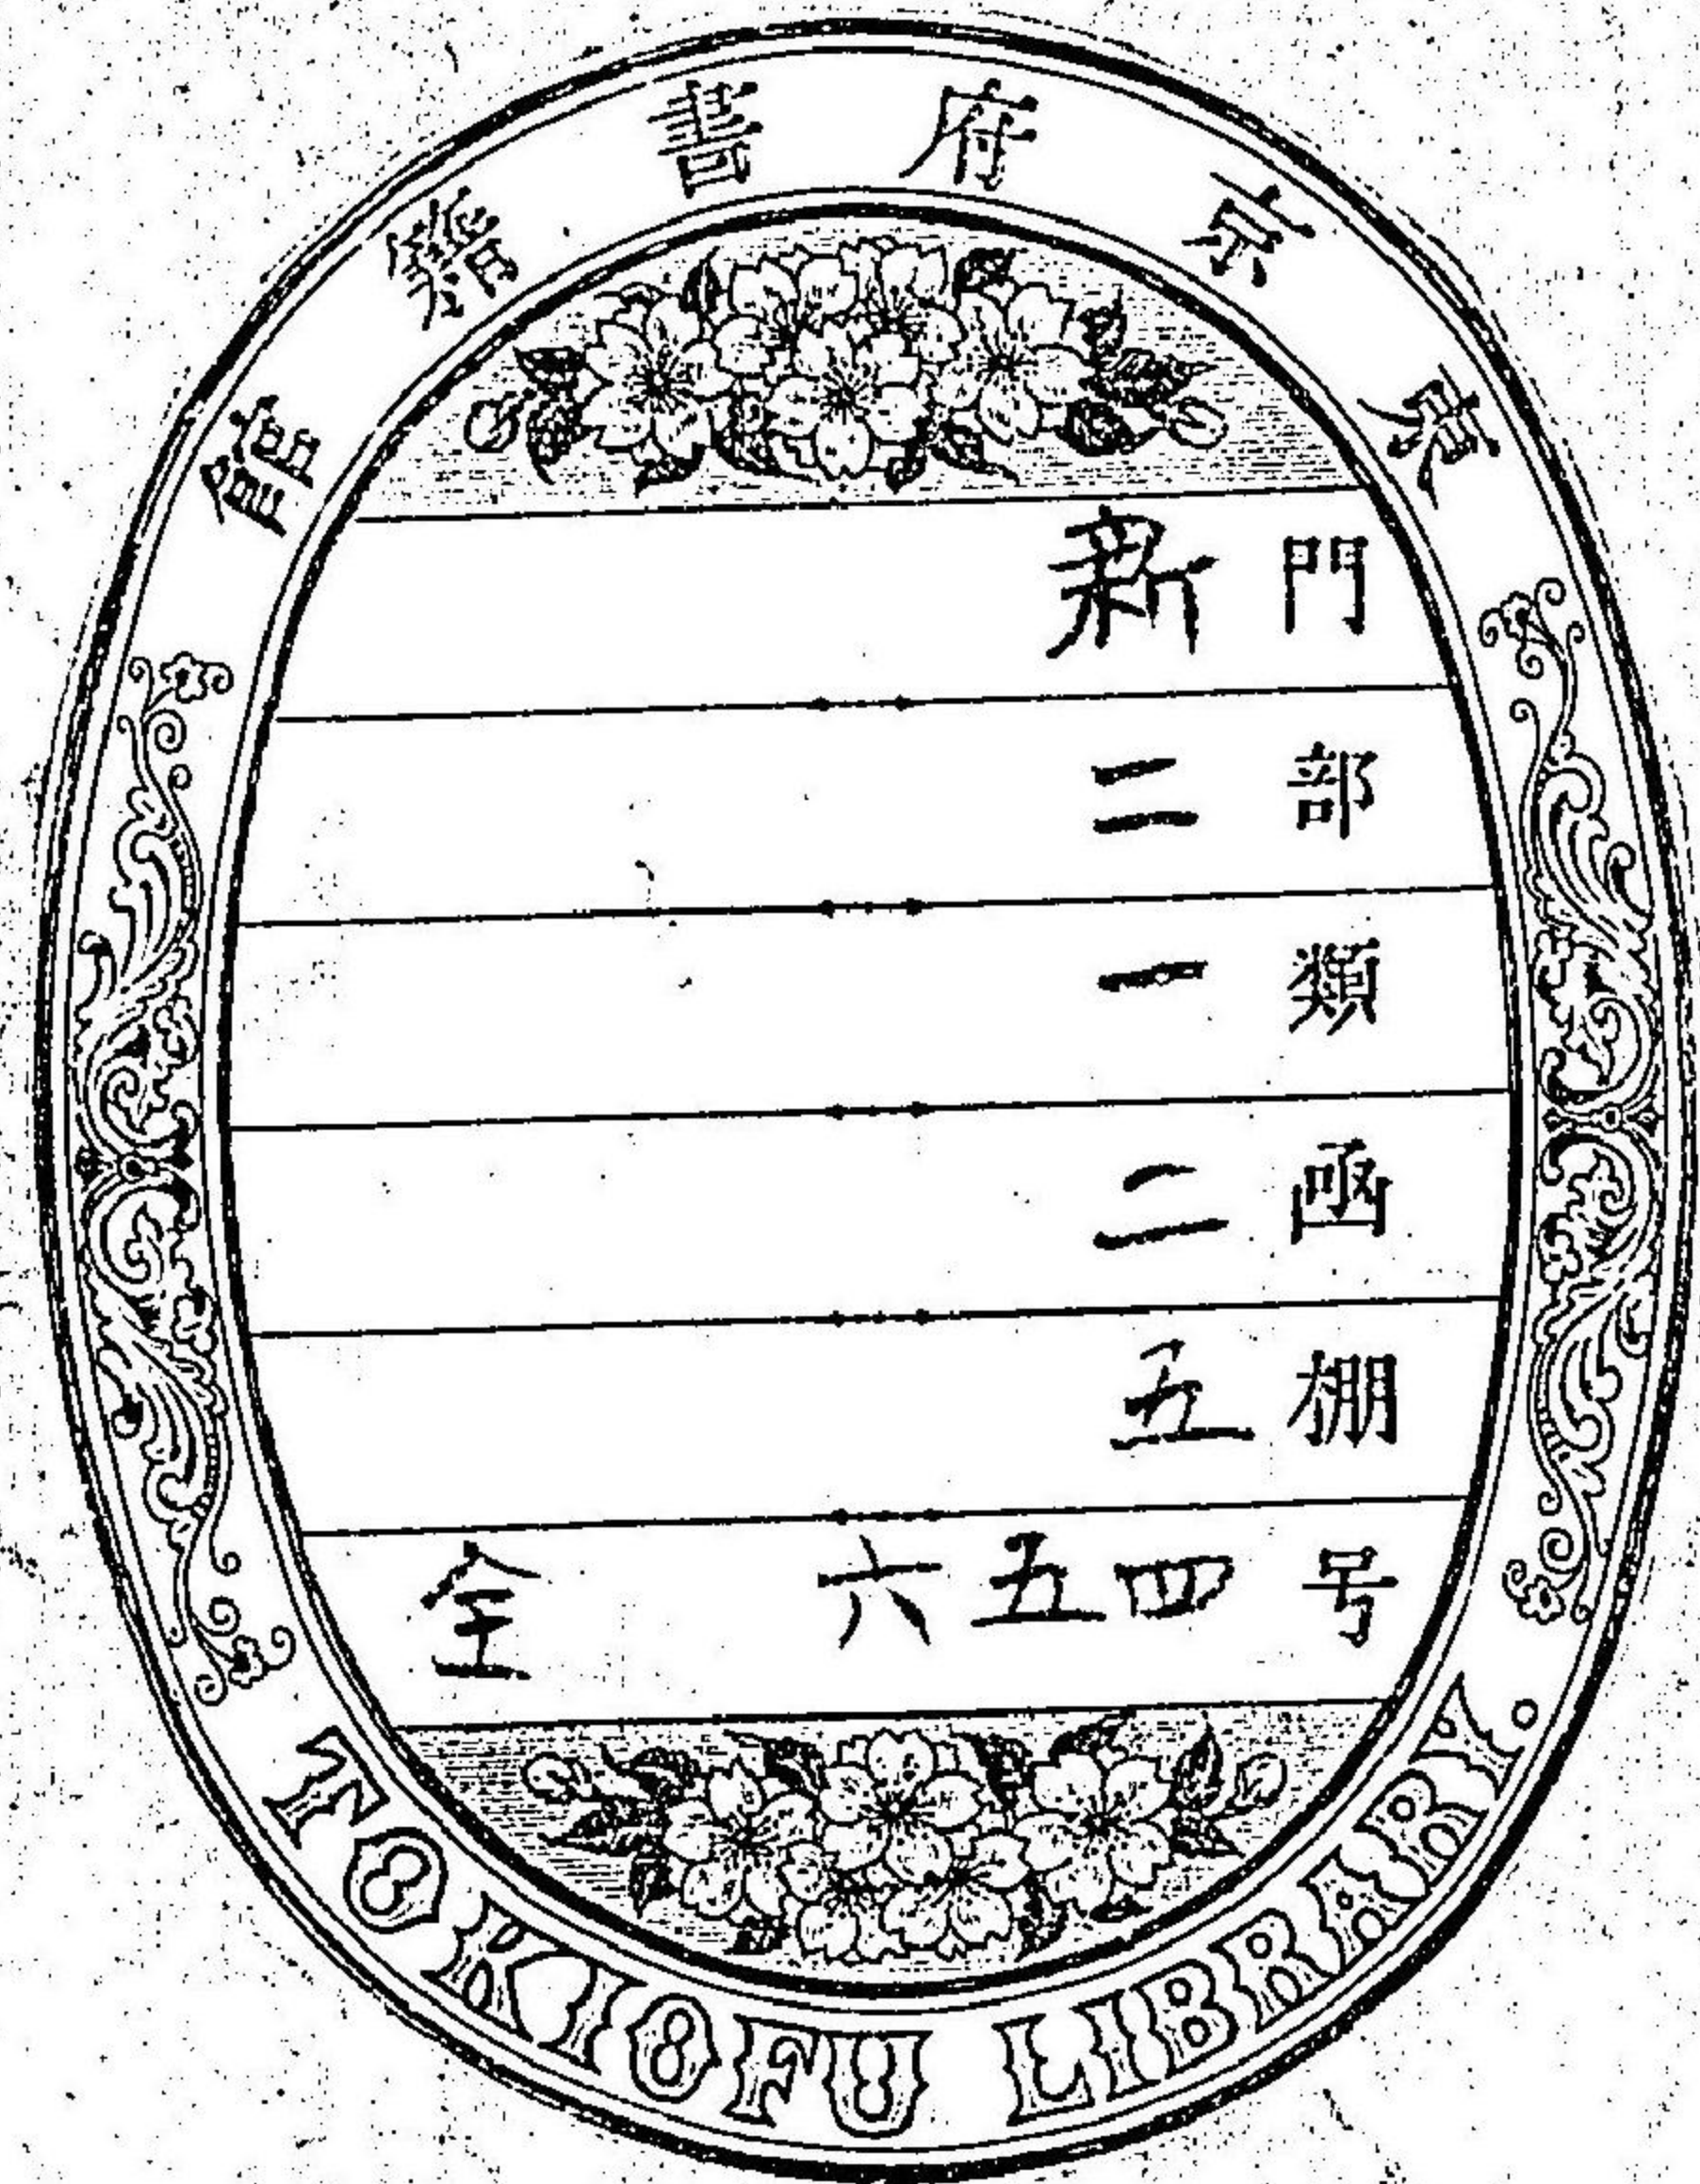 東京府書籍館
門 新
部 二
類 一
凾 二
棚 五
号 四五六 全
TOKIOFU LIBRARY.